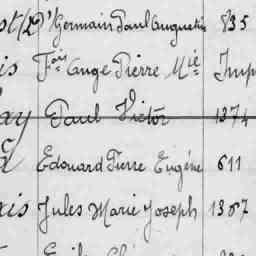 st (2e) Germain Paul Augustin 835
is Foy Ange Pierre Mie Imp
ay Paul Victor 1374
Edouard Pierre Eugène 611
xis Jules Marie Joseph 1387